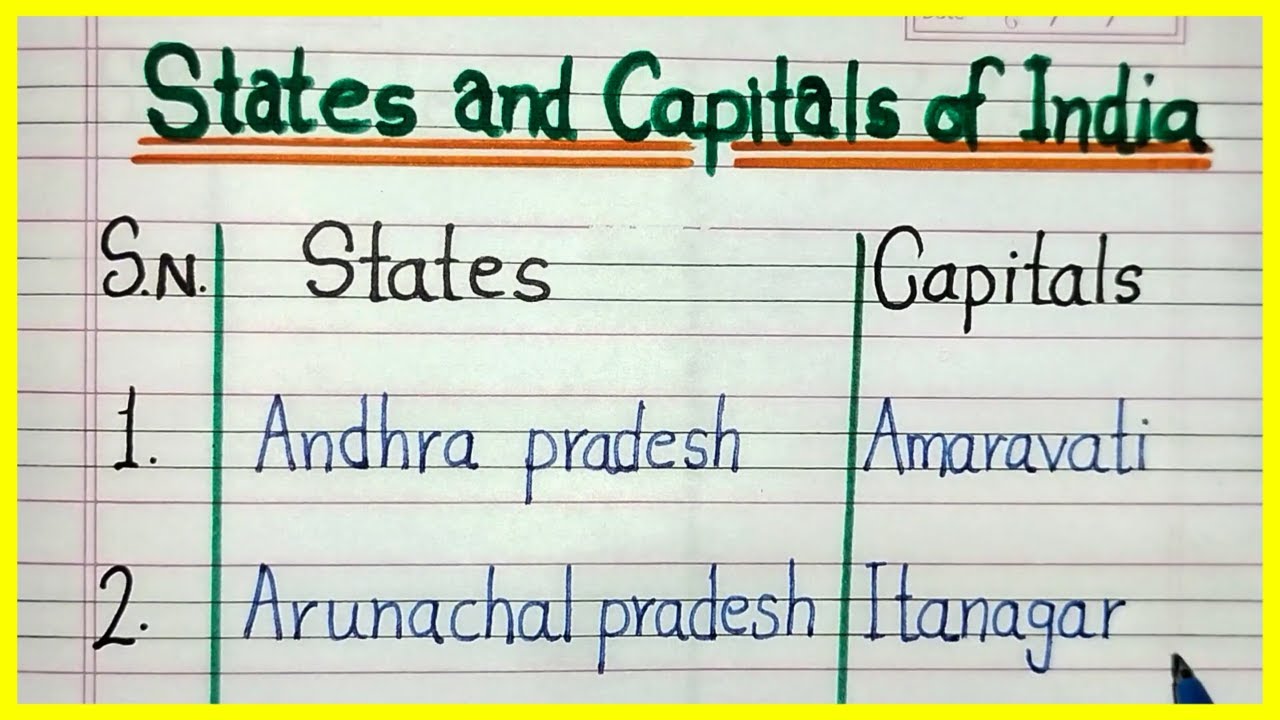 States and Capitals of India
S.N. States Capitals
1. Andhra pradesh Amaravati
2. Arunachal pradesh Itanagar